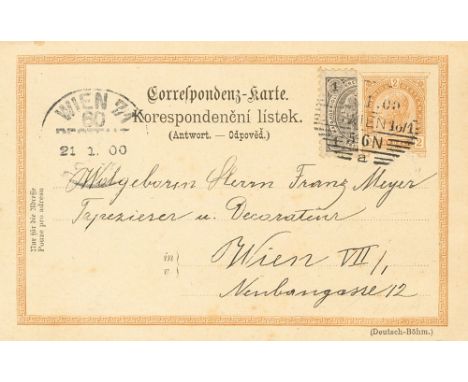 Correspondenz-Karte.
Korespondenční lístek.
(Antwort. — Odpověď.)
WIEN 7/1
60
21 1 00
1
2
2
00
WIEN 10/1
5-6N
a
Nur für die Adresse
Pouze pro adresu
Wolgeboren Herrn Franz Meyer
Tapezierer u. Decorateur
in
v
Wien VII/1
Neubaugasse 12
(Deutsch-Böhm.)